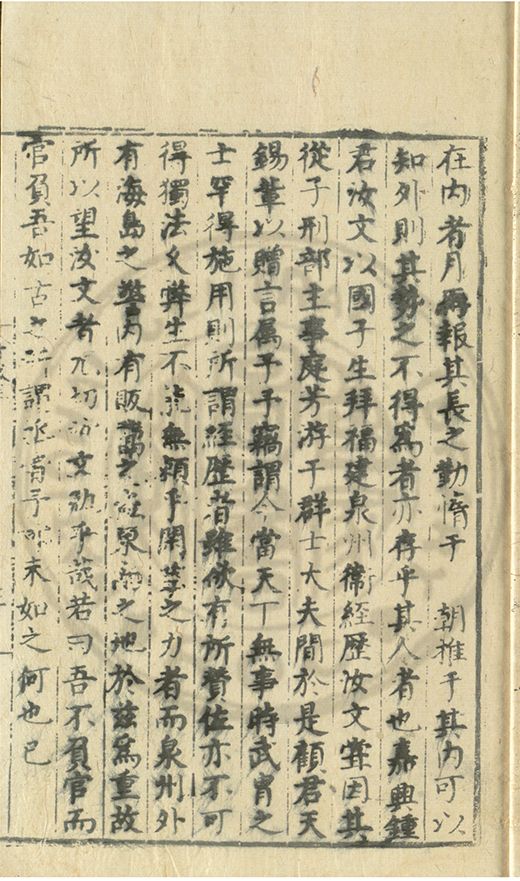 在內者月再報其長之勤惰于　朝推于其力可以
知外則其勢之不得寫者亦存乎其人者也嘉興鍾
君汝文以國子生拜福建泉州衛經歷汝文嘗因其
從子刑部主事庭芳游于群士大夫間於是顧君天
錫輩以贈言屬予予竊謂今當天丁無事時武胄之
士罕得施用則所謂經歷者雖傚有所贊佐亦不可
得獨法久弊生不能無類乎関茸之力者而泉州外
有海島之警內有販鬻之之地於茲為重故
所以望汝文者尤切汝文勗乎哉若曰吾不負官而
官負吾如古之謂予末如之何也已